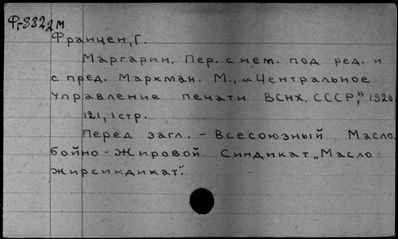 Ф-8822м
Францен, Г.
Маргарин. Пер. с нем. под ред. и
с пред. Маркман. М., „Центральное
управление печати ВСНХ. СССР", 1926
121, 1 стр.
Перед загл. - Всесоюзный Масло
бойно-Жировой Синдикат „Масло-
жирсиндикат".